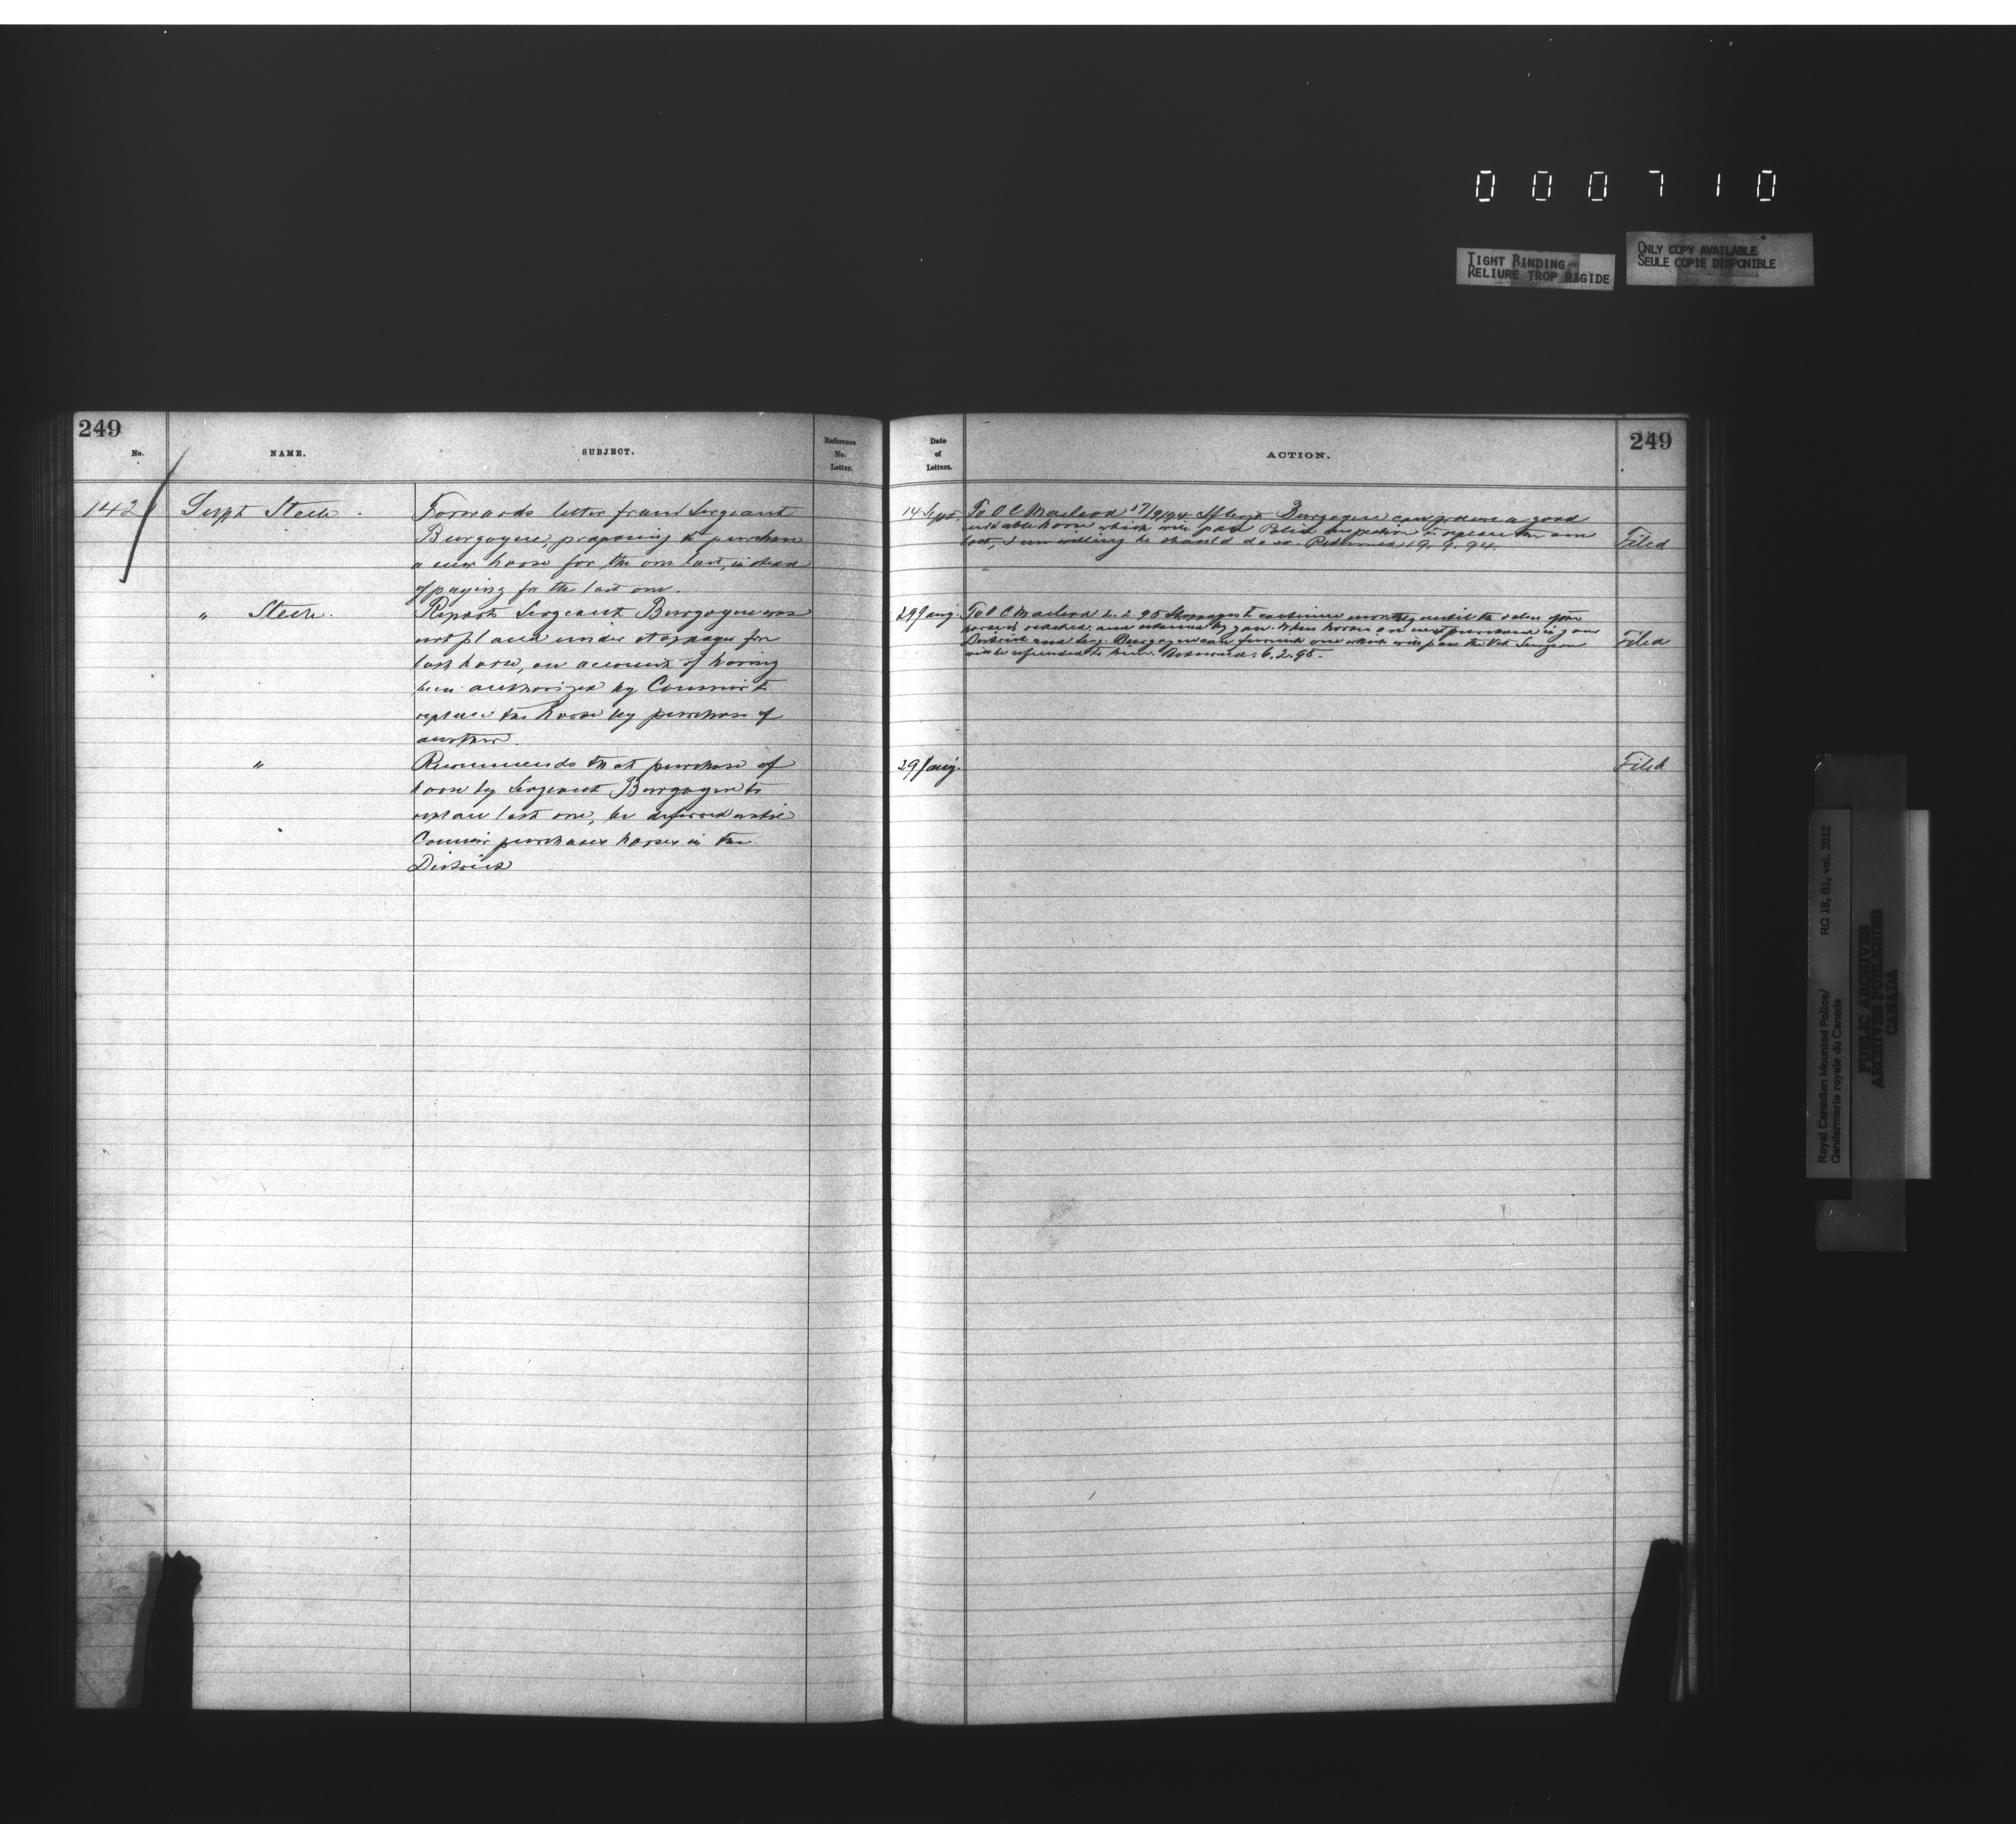 000710
TIGHT BINDING
RELIURE TROP RIGIDE
ONLY COPY AVAILABLE
SEULE COPIE DISPONIBLE
249
No.
NAME.
SUBJECT.
Reference
No.
Letter.
142
Supt Steele.
Forwards letter from Sergeant
Burgoyne, proposing to purchase
a new horse for the one lost, instead
of paying for the lost one.
" Steele.
Reports Sergeant Burgoyne was
not placed under stoppages for
lost horse, on account of having
been authorized by Commr to
replace the horse by purchase of
another.
"
Recommends that purchase of
horse by Sergeant Burgoyne to
replace lost one, be deferred until
Commr purchases horses in the
District
Date
of
Letters.
ACTION.
249
14 Sept.
To O C Macleod 17/9/94 If Sergt Burgoyne can procure a good
suitable horse which will pass Police inspection to replace the one
lost, I am willing he should do so. Returned 19.9.94.
Filed
29 Jany.
To O C Macleod 2.2.95 Stoppages to continue monthly until the value of the
horse is reached and retained by you. When horses are next purchased in your
District and Sergt Burgoyne can furnish one which will pass the Vet Surgeon
will be refunded to him. Returned 6.2.95.
Filed
29 Jany.
Filed
Royal Canadian Mounted Police/
Gendarmerie royale du Canada
RG 18, B1, vol. 2012
PUBLIC ARCHIVES
ARCHIVES PUBLIQUES
CANADA